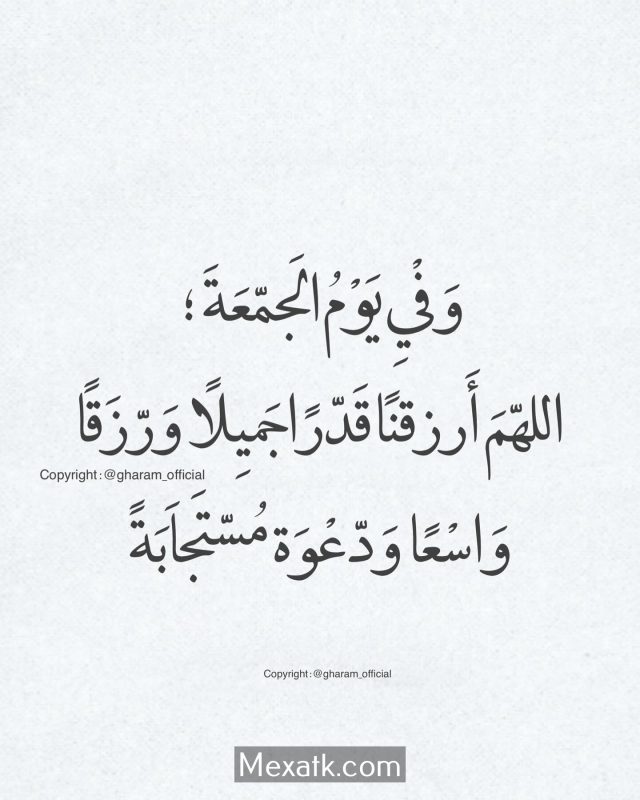 وَفْيِ يَوْمُ الَجمّعَةَ ؛
اللهّمَ أَرزقنًا قَدّرًا جَمِيلًا وَرّزَقًا
Copyright : @gharam_official
وَاسْعًا وَدّعْوَة مُسّتَجاَبَةً
Copyright : @gharam_official
Mexatk.com